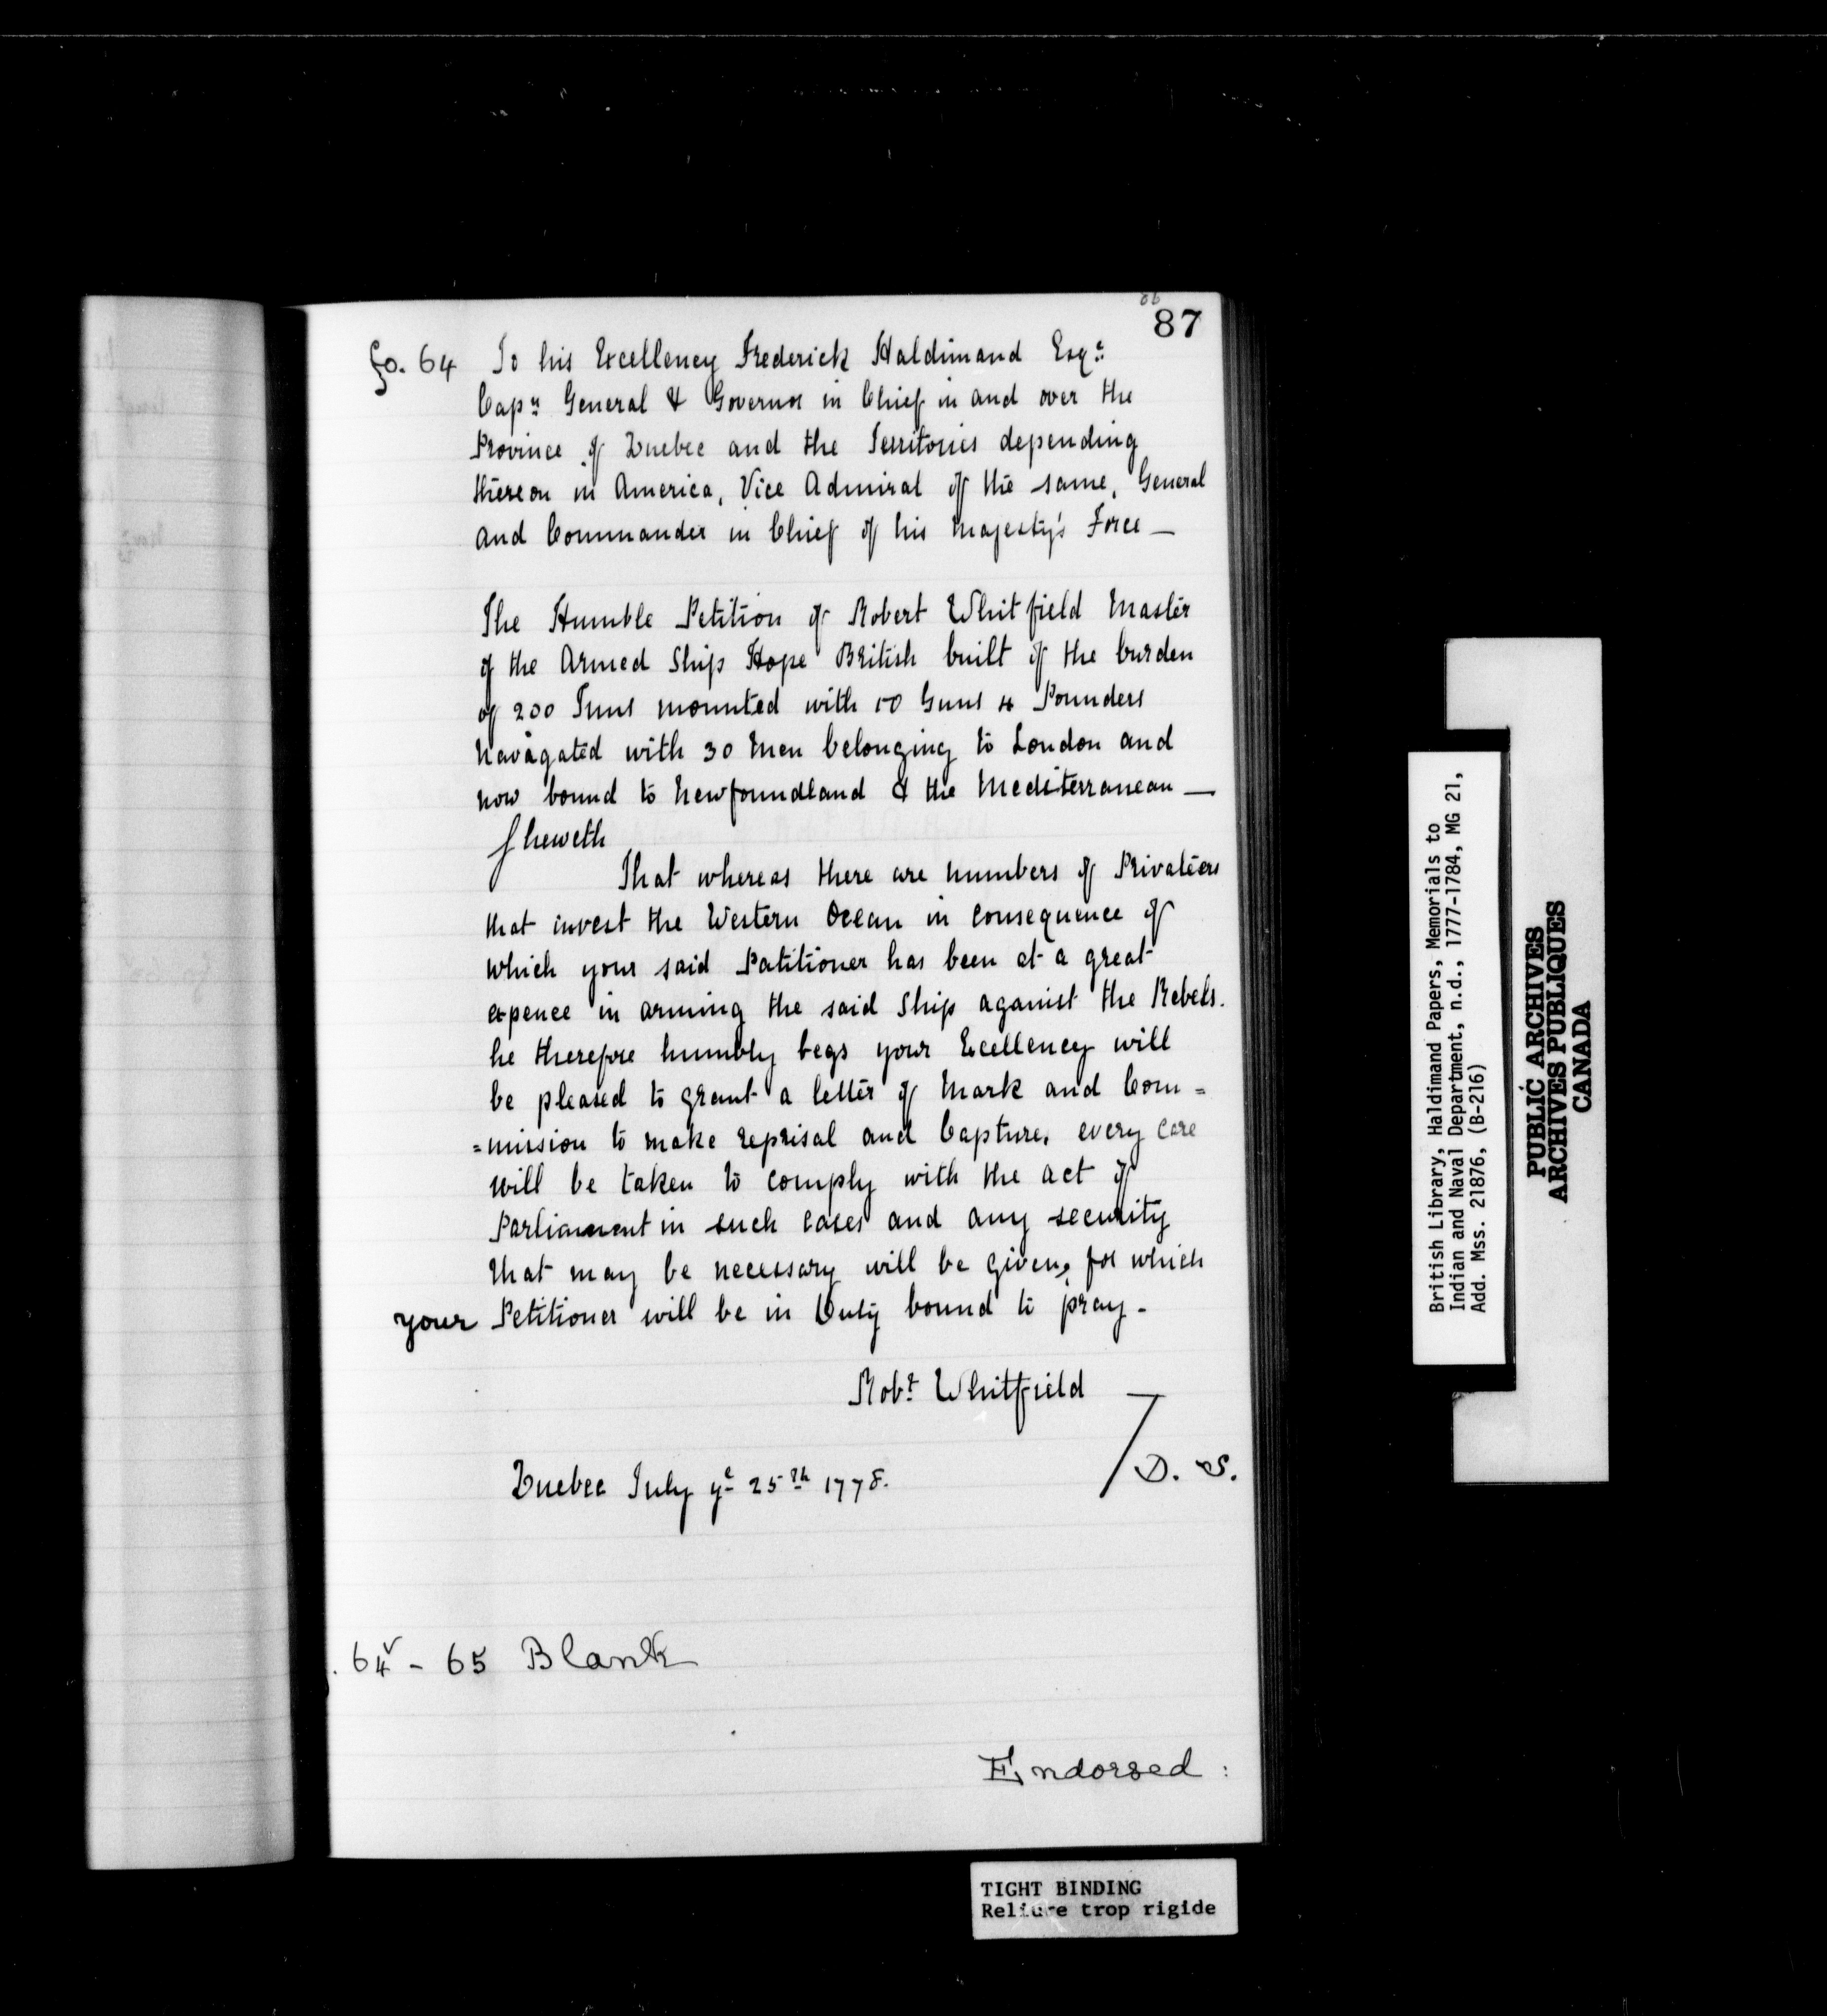 87
fo. 64 To his Excellency Frederick Haldimand Esqr.
Capn. General & Governor in Chief in and over the
Province of Quebec and the Territories depending
thereon in America, Vice Admiral of the same, General
and Commander in Chief of his Majesty's Force —
The Humble Petition of Robert Whitfield Master
of the Armed Ship Hope British built of the burden
of 200 Tuns mounted with 10 Guns 4 Pounders
Navagated with 30 Men belonging to London and
now bound to Newfoundland & the Mediterranean —
Sheweth
That whereas there are numbers of Privateers
that invest the Western Ocean in consequence of
which your said Patitioner has been at a great
expence in arming the said Ship against the Rebels.
he therefore humbly begs your Excellency will
be pleased to grant a letter of Mark and Com=
=mission to make reprisal and Capture, every care
will be taken to comply with the act of
Parliament in such cases and any security
that may be necessary will be given, for which
your Petitioner will be in Duty bound to pray -
Robt. Whitfield
D. S.
Quebec July ye 25th 1778.
64v - 65 Blank
Endorsed :
TIGHT BINDING
Reliure trop rigide
British Library, Haldimand Papers, Memorials to
Indian and Naval Department, n.d., 1777-1784, MG 21,
Add. Mss. 21876, (B-216)
PUBLIC ARCHIVES
ARCHIVES PUBLIQUES
CANADA